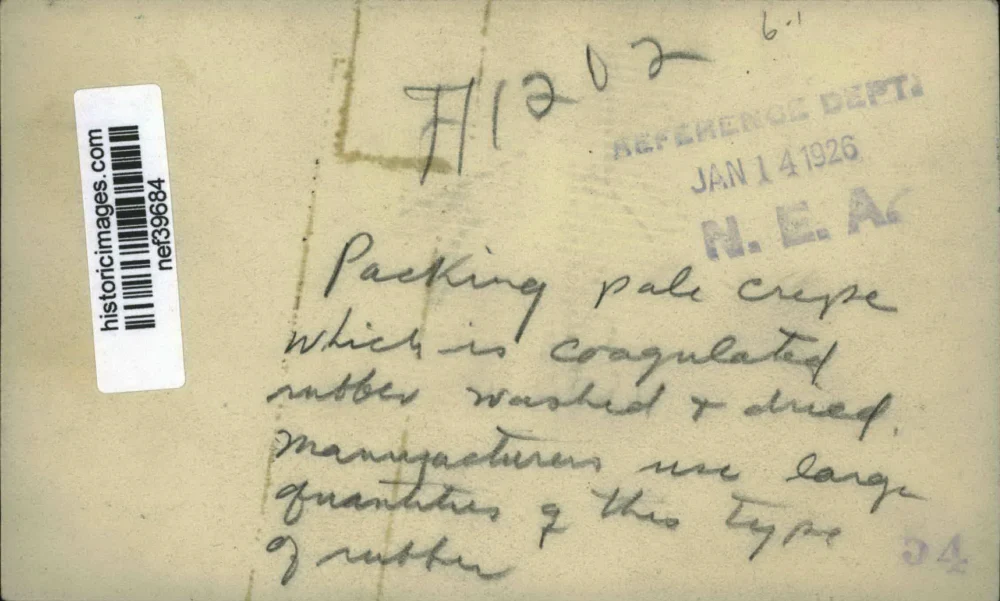 6-1
A1202
REFERENCE DEPT.
JAN 14 1926
N. E. A.
historicimages.com
nef39684
Packing pale crepe
which is coagulated
rubber washed & dried.
Manufacturers use large
quantities of this type
of rubber
54